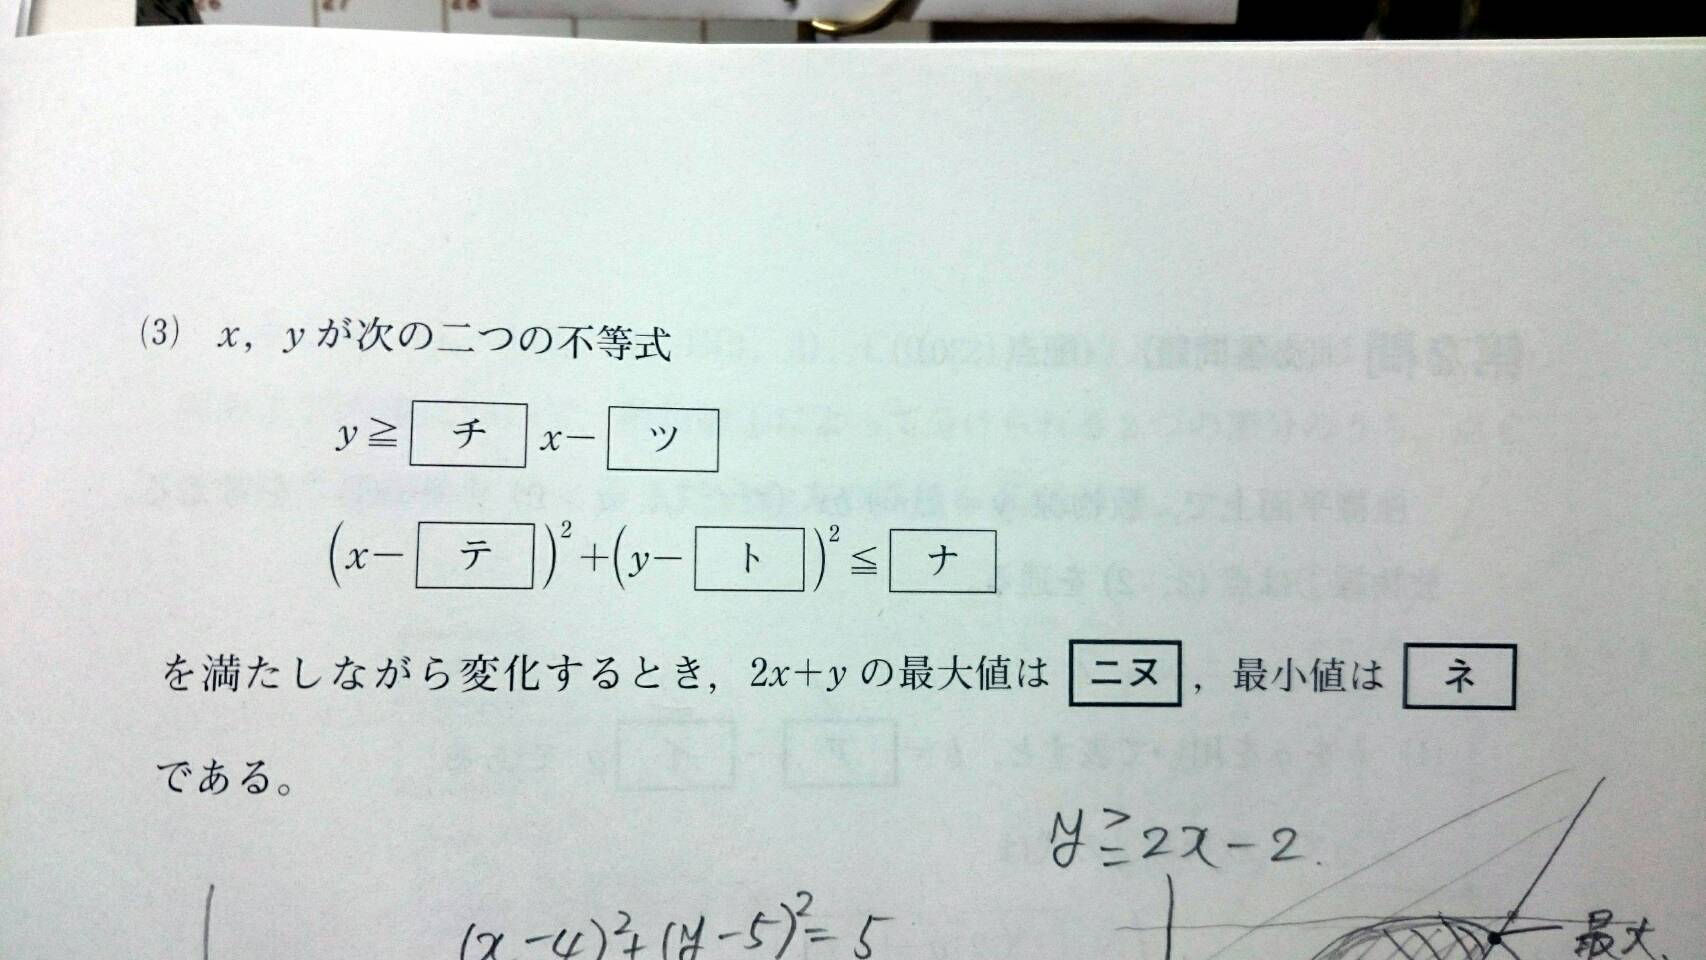 26 27 28
(3) x, yが次の二つの不等式
y≧ チ x− ツ
(x− テ )²+(y− ト )²≦ ナ
を満たしながら変化するとき, 2x+yの最大値は ニヌ , 最小値は ネ
である。
y≧2x−2.
(x−4)²+(y−5)²=5
最大